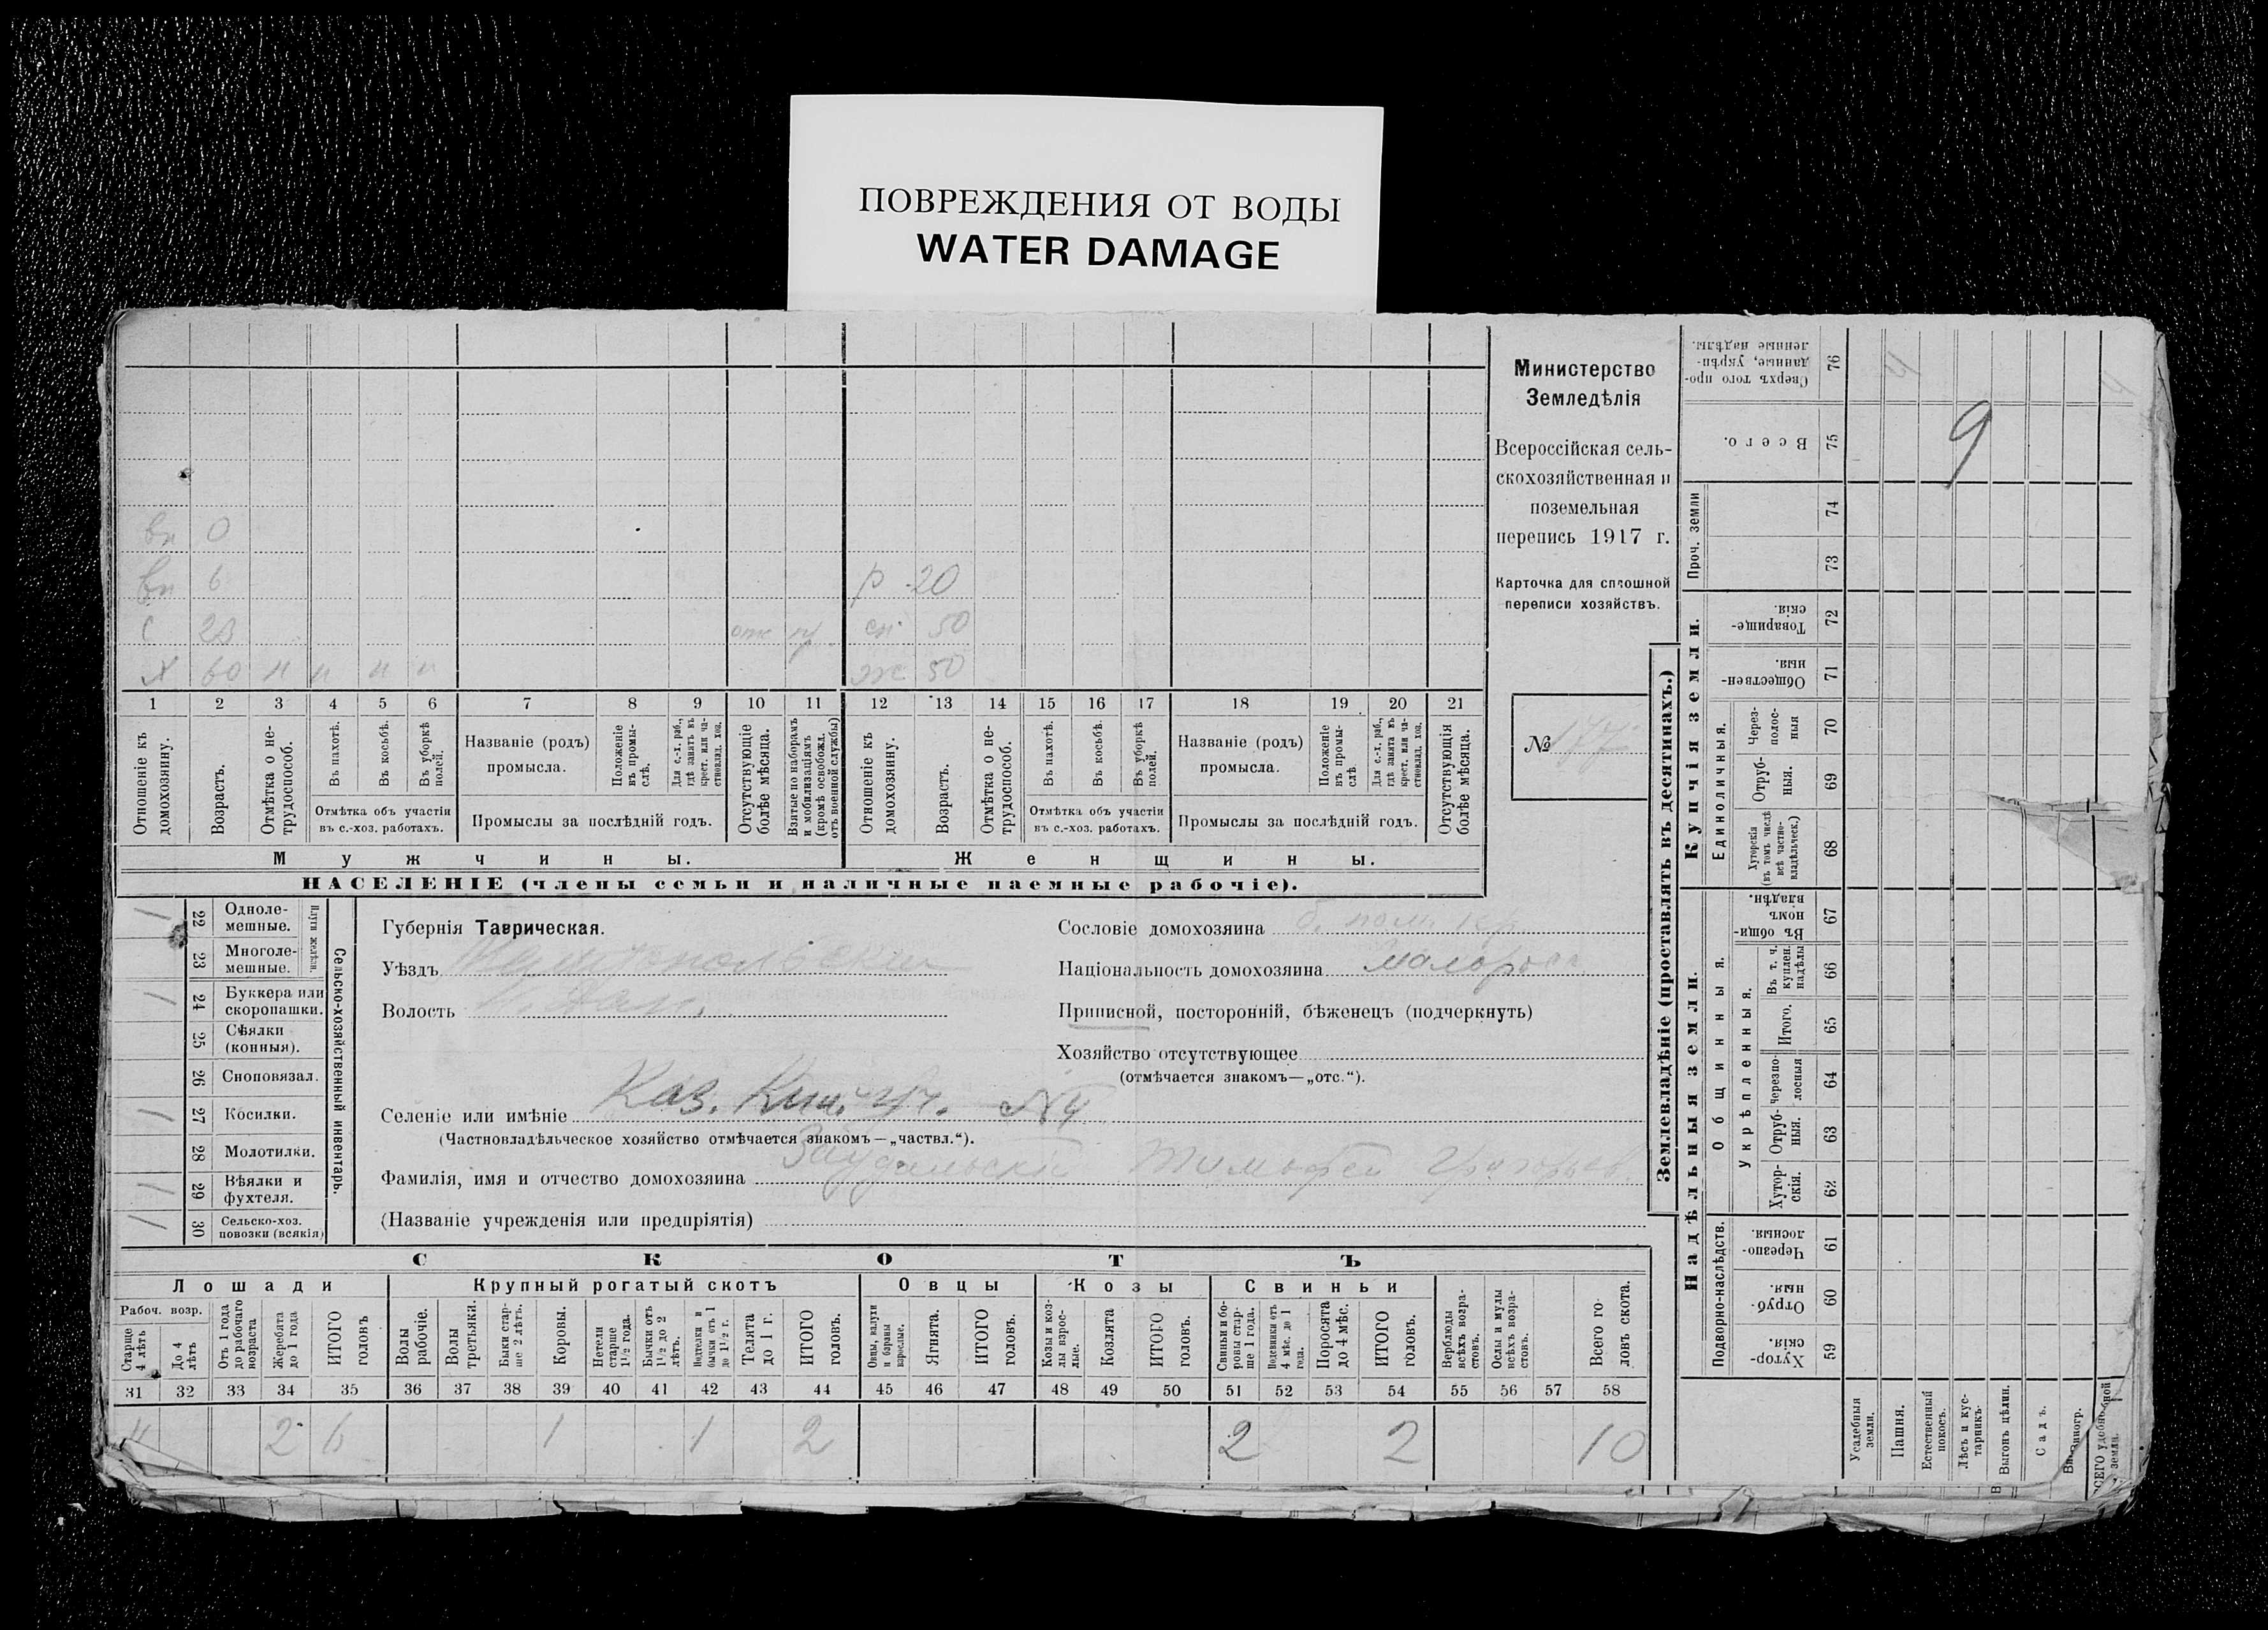 ПОВРЕЖДЕНИЯ ОТ ВОДЫ
WATER DAMAGE
Министерство
Земледѣлія
Всероссійская сель-
скохозяйственная и
поземельная
перепись 1917 г.
Карточка для сплошной
переписи хозяйствъ.
№
вн 0
вн 6
р 20
с 23
50
х 60 н н н н
ж 50
1 2 3 4 5 6 7 8 9 10 11 12 13 14 15 16 17 18 19 20 21
Отношеніе къ домохозяину.
Возрастъ.
Отмѣтка о не-трудоспособ.
Въ пахотѣ.
Въ косьбѣ.
Въ уборкѣ полей.
Отмѣтка объ участіи
въ с.-хоз. работахъ.
Названіе (родъ)
промысла.
Положеніе въ промы-слѣ.
Для с.-х. раб., гдѣ занятъ въ крест. или ча-стновлад. хоз.
Промыслы за послѣдній годъ.
Отсутствующіе болѣе мѣсяца.
Взятые по наборамъ и мобилизаціямъ (кромѣ освобожд. отъ военной службы)
Отношеніе къ домохозяину.
Возрастъ.
Отмѣтка о не-трудоспособ.
Въ пахотѣ.
Въ косьбѣ.
Въ уборкѣ полей.
Отмѣтка объ участіи
въ с.-хоз. работахъ.
Названіе (родъ)
промысла.
Положеніе въ промы-слѣ.
Для с.-х. раб., гдѣ занята въ крест. или ча-стновлад. хоз.
Промыслы за послѣдній годъ.
Отсутствующія болѣе мѣсяца.
Мужчины.
Женщины.
НАСЕЛЕНІЕ (члены семьи и наличные наемные рабочіе).
Сельско-хозяйственный инвентарь.
Плуги желѣзн.
22 Одноле-
мешные.
23 Многоле-
мешные.
24 Буккера или
скоропашки.
25 Сѣялки
(конныя).
26 Сноповязал.
27 Косилки.
28 Молотилки.
29 Вѣялки и
фухтеля.
30 Сельско-хоз.
повозки (всякія)
Губернія Таврическая.
Уѣздъ
Волость
Сословіе домохозяина
Національность домохозяина малоросс
Приписной, посторонній, бѣженецъ (подчеркнуть)
Хозяйство отсутствующее
(отмѣчается знакомъ—„отс.“).
Селеніе или имѣніе Каз. Кин. уч. №4
(Частновладѣльческое хозяйство отмѣчается знакомъ—„частвл.“).
Фамилія, имя и отчество домохозяина Тимофей Григорьев.
(Названіе учрежденія или предпріятія)
СКОТЪ
Лошади
Рабоч. возр.
Старше 4 лѣтъ
До 4 лѣтъ
Отъ 1 года до рабочаго возраста
Жеребята до 1 года
ИТОГО головъ
Крупный рогатый скотъ
Волы рабочіе.
Волы третьяки.
Быки стар-ше 2 лѣтъ.
Коровы.
Нетели старше 1½ года.
Бычки отъ 1½ до 2 лѣтъ.
Подтелки и бычки отъ 1 до 1½ г.
Телята до 1 г.
ИТОГО головъ.
Овцы
Овцы, валухи и бараны взрослые.
Ягнята.
ИТОГО головъ.
Козы
Козы и коз-лы взрос-лые.
Козлята
ИТОГО головъ.
Свиньи
Свиньи и бо-ровы стар-ше 1 года.
Подсвинки отъ 4 мѣс. до 1 года.
Поросята до 4 мѣс.
ИТОГО головъ.
Верблюды всѣхъ возра-стовъ.
Ослы и мулы всѣхъ возра-стовъ.
Всего го-ловъ скота.
31 32 33 34 35 36 37 38 39 40 41 42 43 44 45 46 47 48 49 50 51 52 53 54 55 56 57 58
4 2 6 1 1 2 2 2 10
Землевладѣніе (проставлять въ десятинахъ.)
Купчія земли.
Надѣльныя земли.
Сверхъ того про-данные, укрѣп-ленные надѣлы. 76
Всего. 75
9
Проч. земли
74
73
Товарище-скія. 72
Обществен-ныя. 71
Единоличныя.
Через-полос-ныя 70
Отруб-ныя. 69
Хуторскія (въ томъ числѣ всѣ частно-владѣльческ.) 68
Общинныя.
Въ общин-номъ владѣн. 67
Укрѣпленныя.
Въ т. ч. куплен. надѣлы 66
Итого. 65
Черезпо-лосныя 64
Отруб-ныя. 63
Хутор-скія. 62
Подворно-наслѣдств.
Черезпо-лосныя 61
Отруб-ныя. 60
Хутор-скія. 59
Усадебныя земли.
Пашня.
Естественный покосъ.
Лѣсъ и кус-тарникъ.
Выгонъ цѣлин.
Садъ.